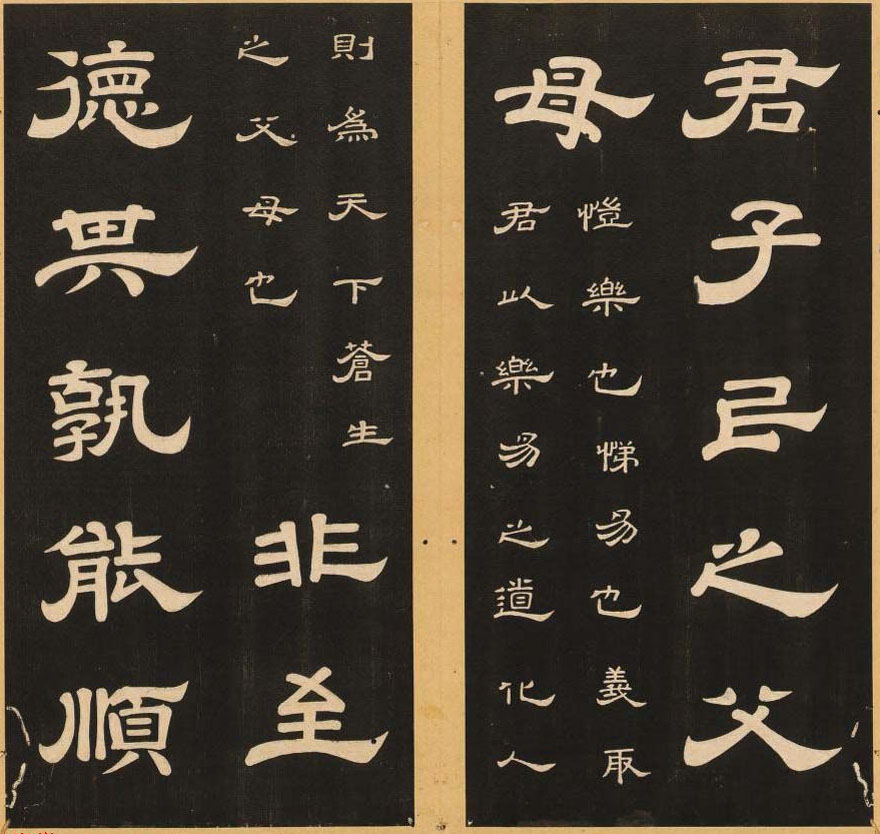 君子民之父
母
愷樂也悌易也義取
君以樂易之道化人
則爲天下蒼生
之父母也
非至
德其孰能順